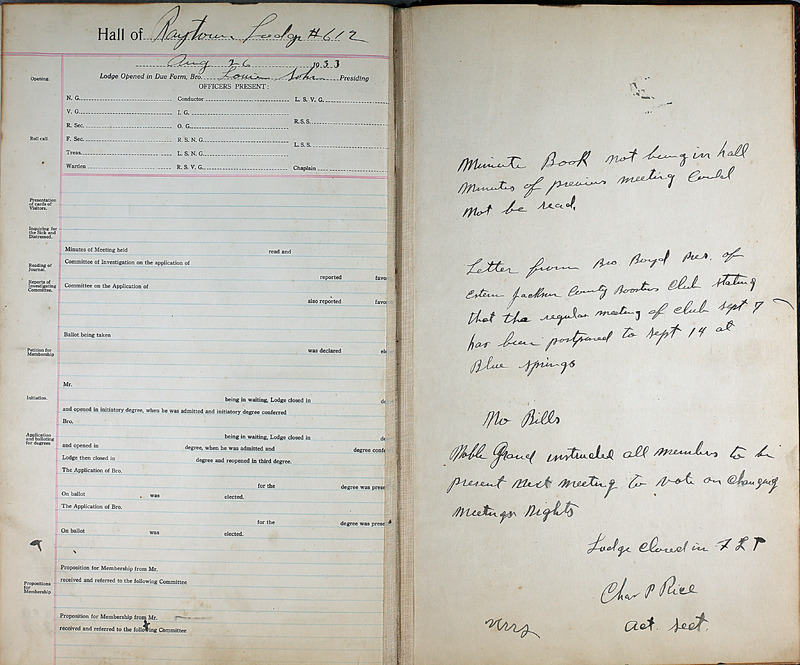 Hall of Raytown Lodge #612
Aug 26 1933
Opening. Lodge Opened in Due Form, Bro. Louie Presiding
OFFICERS PRESENT:
N. G. Conductor L. S. V. G.
V. G. I. G.
R. Sec. O. G. R.S.S.
Roll call. F. Sec. R. S. N. G.
Treas. L. S. N. G. L.S.S.
Warden R. S. V. G. Chaplain
Presentation
of cards of
Visitors.
Inquiring for
the Sick and
Distressed.
Minutes of Meeting held read and
Reading of
Journal.
Committee of Investigation on the application of
reported favo
Reports of
Investigating
Committee.
Committee on the Application of
also reported favo
Ballot being taken
Petition for
Membership
was declared ele
Mr.
Initiation.
being in waiting, Lodge closed in de
and opened in initiatory degree, when he was admitted and initiatory degree conferred
Bro.
Application
and balloting
for degrees
being in waiting, Lodge closed in de
and opened in degree, when he was admitted and degree confe
Lodge then closed in degree and reopened in third degree.
The Application of Bro.
for the degree was prese
On ballot was elected.
The Application of Bro.
for the degree was prese
On ballot was elected.
Proposition for Membership from Mr.
Propositions
for
Membership
received and referred to the following Committee
Proposition for Membership from Mr.
received and referred to the following Committee
Minute Book not being in hall
Minutes of previous meeting could
not be read.
Letter from Bro Boyd Pres. of
Estern Jackson County Boosters Club stating
that the regular meeting of club Sept 7
has been postponed to Sept 14 at
Blue Springs
No Bills
Noble Grand instructed all members to be
present next meeting to vote on changing
meetings nights
Lodge closed in F L T
Chas P Rice
Act. Sect.